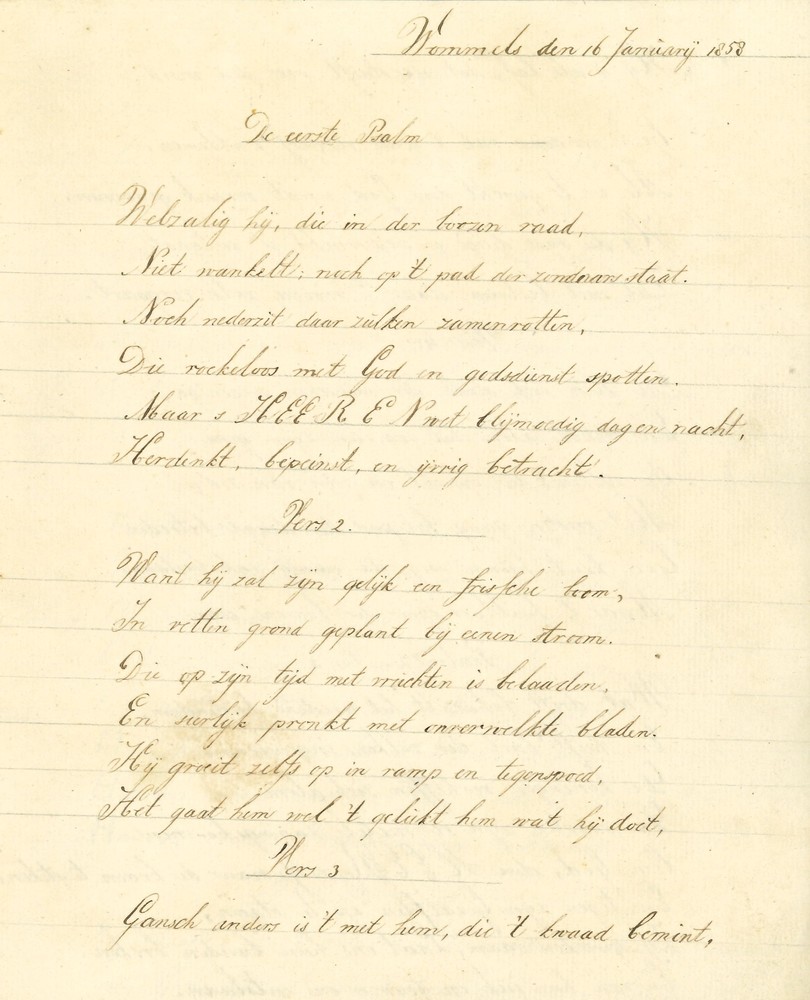 Wommels den 16 Januarij 1858
De eerste Psalm
Welzalig hij, die in der boozen raad,
Niet wankelt; noch op 't pad der zondaars staat.
Noch nederzit daar zulken zamenrotten,
Die roekeloos met God en godsdienst spotten.
Maar s HEEREN wet blijmoedig dag en nacht,
Herdenkt, bepeinst, en ijvrig betracht.
Vers 2.
Want hij zal zijn gelijk een frissche boom,
In vetten grond geplant bij eenen stroom.
Die op zijn tijd met vruchten is belaaden,
En sierlijk pronkt met onverwelkte bladen.
Hij groeit zelfs op in ramp en tegenspoed,
Het gaat hem wel 't gelukt hem wat hij doet,
Vers 3
Gansch anders is 't met hem, die 't kwaad bemint,